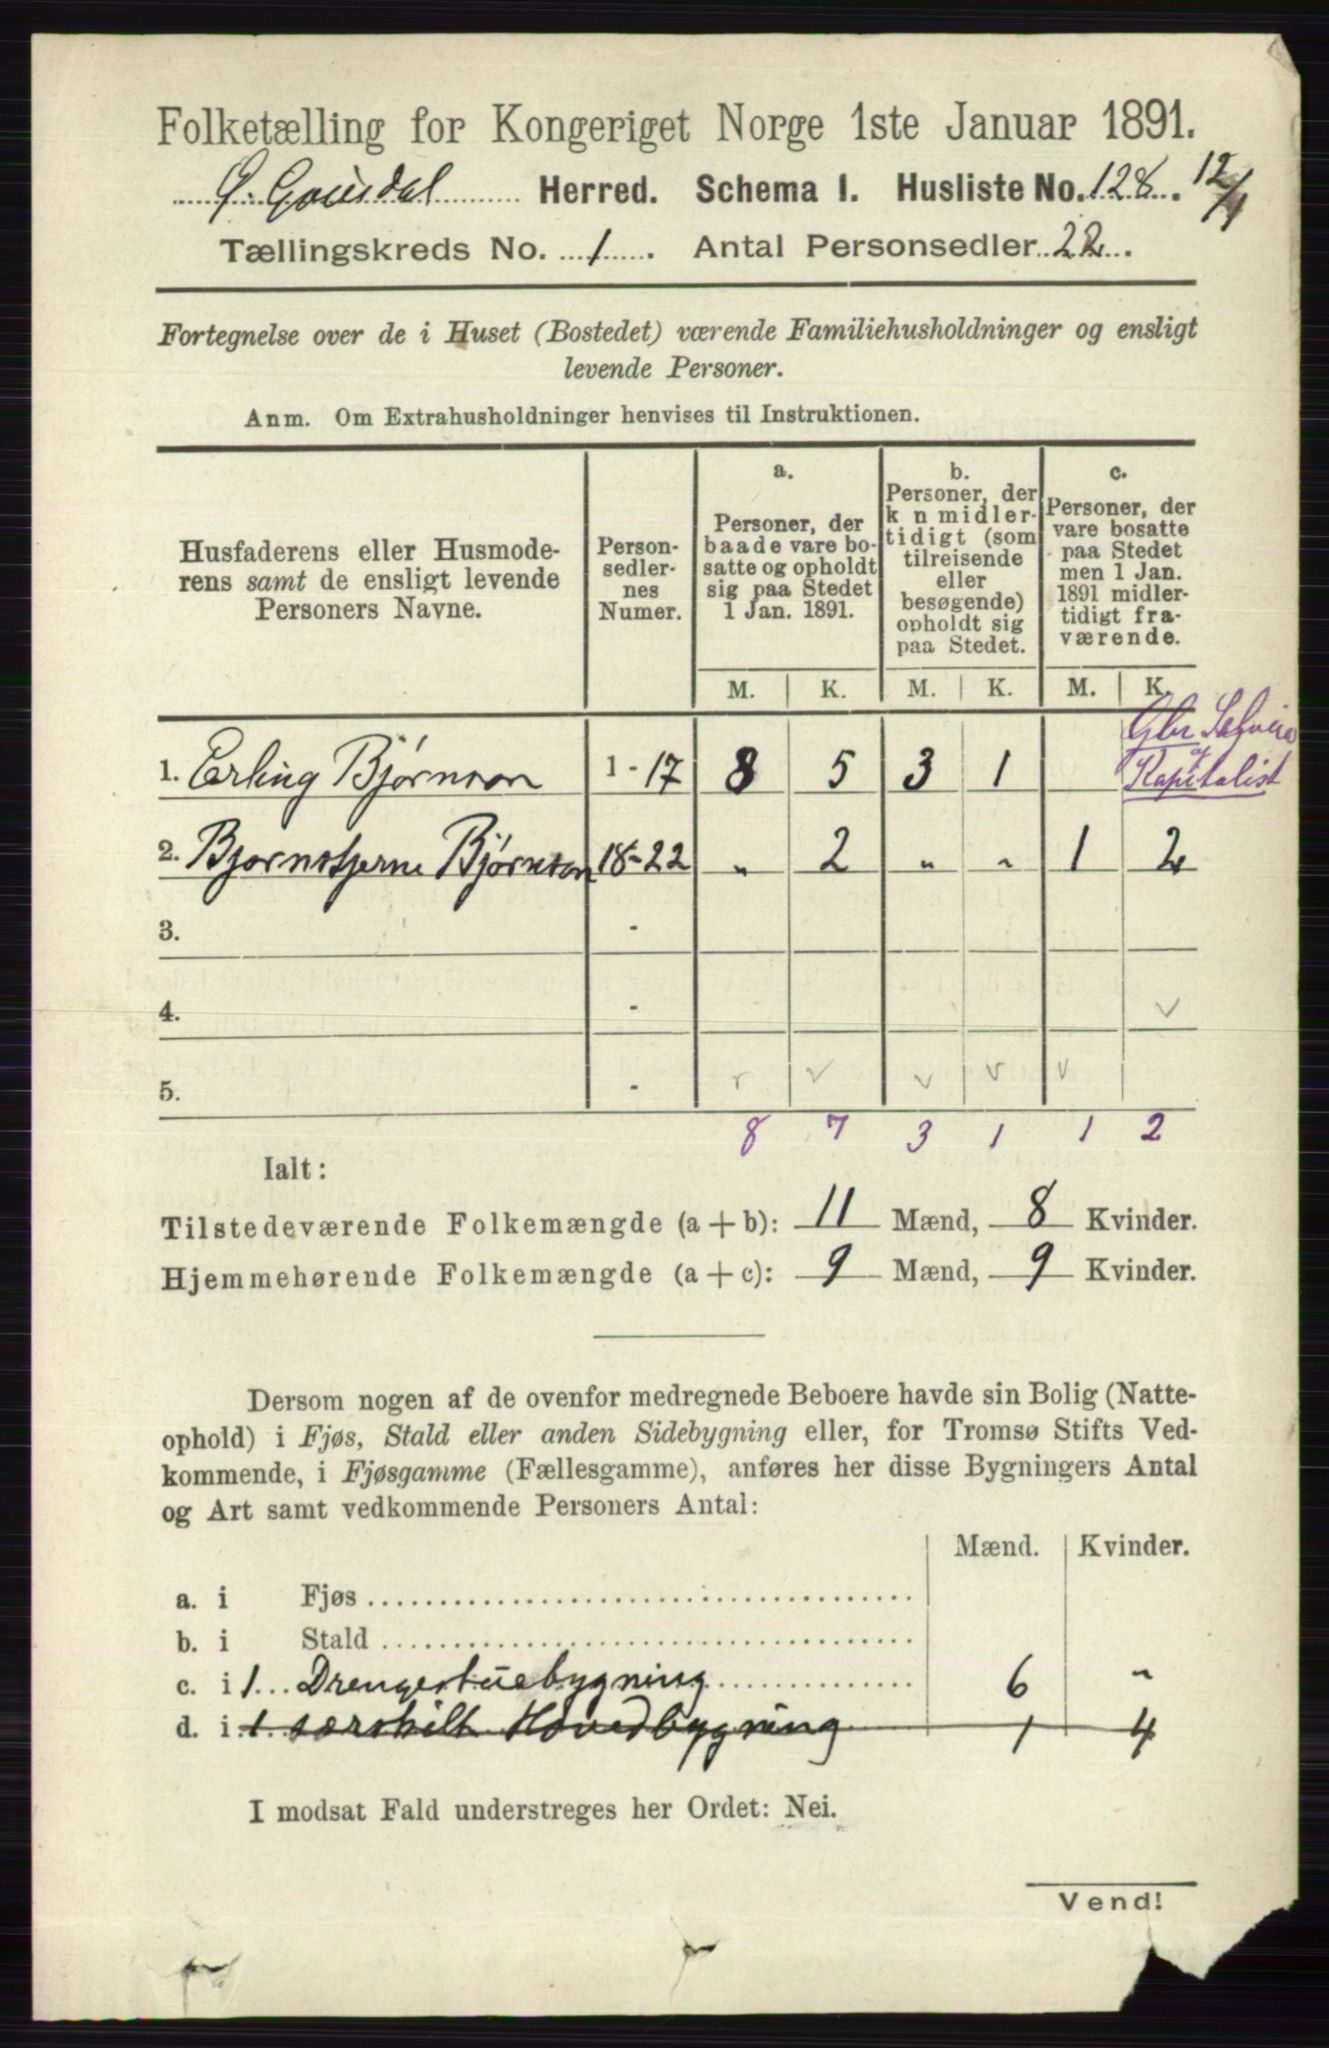 Folketælling for Kongeriget Norge 1ste Januar 1891.
Ø. Gausdal Herred. Schema 1. Husliste No. 128. 12/1
Tællingskreds No. 1. Antal Personsedler 22.
Fortegnelse over de i Huset (Bostedet) værende Familiehusholdninger og ensligt
levende Personer.
Anm. Om Extrahusholdninger henvises til Instruktionen.
Husfaderens eller Husmode-
rens samt de ensligt levende
Personers Navne.
Person-
sedler-
nes
Numer.
a.
Personer, der
baade vare bo-
satte og opholdt
sig paa Stedet
1 Jan. 1891.
b.
Personer, der
k n midler-
tidigt (som
tilreisende
eller
besøgende)
opholdt sig
paa Stedet.
c.
Personer, der
vare bosatte
paa Stedet
men 1 Jan.
1891 midler-
tidigt fra-
værende.
M. K. M. K. M. K.
Gbr Selveier
og
Kapitalist
1. Erling Bjørnson 1-17 8 5 3 1
2. Bjørnstjerne Bjørnson 18-22 „ 2 „ „ 1 2
3. -
4. -
5. -
8 7 3 1 1 2
Ialt:
Tilstedeværende Folkemængde (a + b): 11 Mænd, 8 Kvinder.
Hjemmehørende Folkemængde (a + c): 9 Mænd, 9 Kvinder.
Dersom nogen af de ovenfor medregnede Beboere havde sin Bolig (Natte-
ophold) i Fjøs, Stald eller anden Sidebygning eller, for Tromsø Stifts Ved-
kommende, i Fjøsgamme (Fællesgamme), anføres her disse Bygningers Antal
og Art samt vedkommende Personers Antal:
Mænd. Kvinder.
a. i Fjøs
b. i Stald
c. i 1 Drengestuebygning 6 „
d. i 1 særskilt Hovedbygning 1 4
I modsat Fald understreges her Ordet: Nei.
Vend!